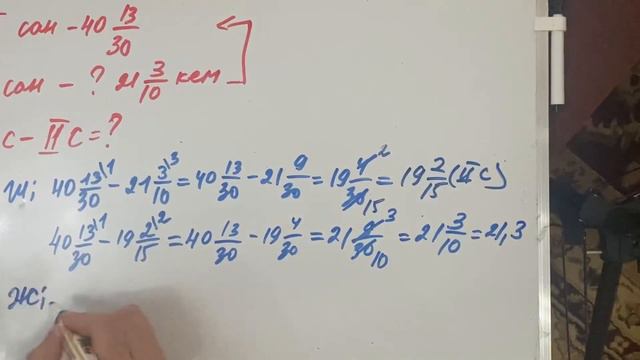 сан - 40 13/30
сан - ? 21 3/10 кем
с - II с = ?
Ш; 40 13/30 \1 - 21 3/10 \3 = 40 13/30 - 21 9/30 = 19 4/30 2/15 = 19 2/15 (II с)
40 13/30 \1 - 19 2/15 \2 = 40 13/30 - 19 4/30 = 21 9/30 3/10 = 21 3/10 = 21,3
Ж;